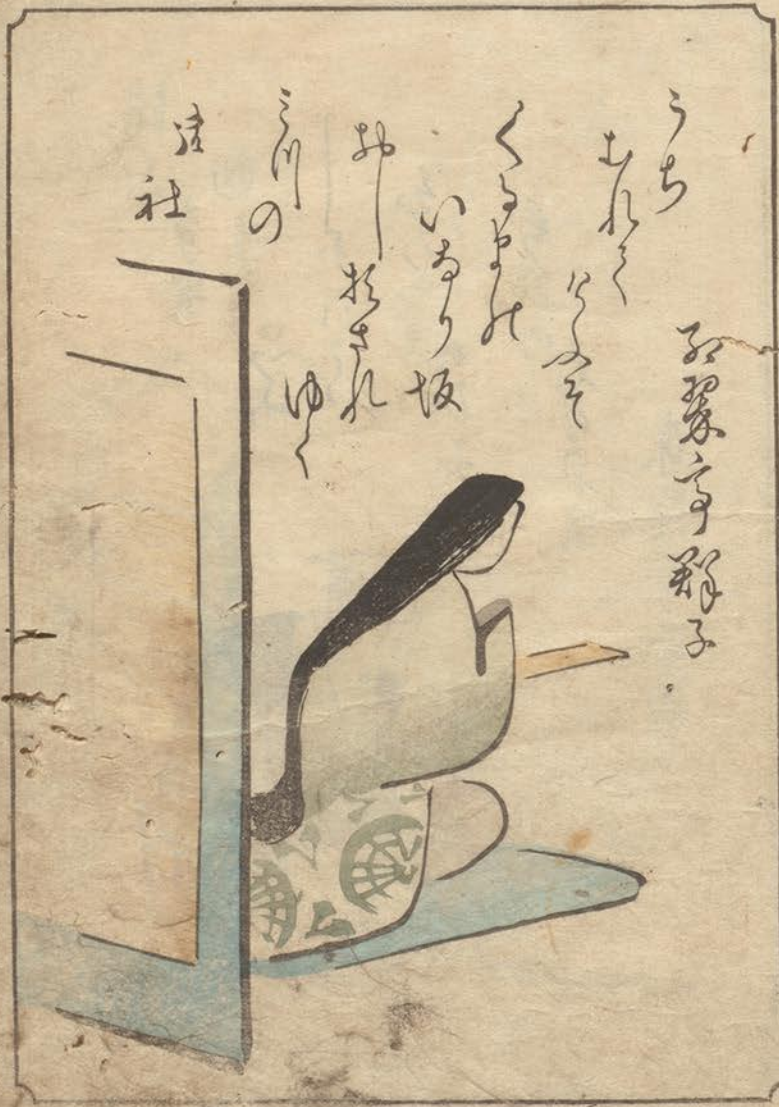 紅翠亭群子
うち
むれて
けふそ
くるまの
いなり坂
おし
おされ
ゆく
三川の
社